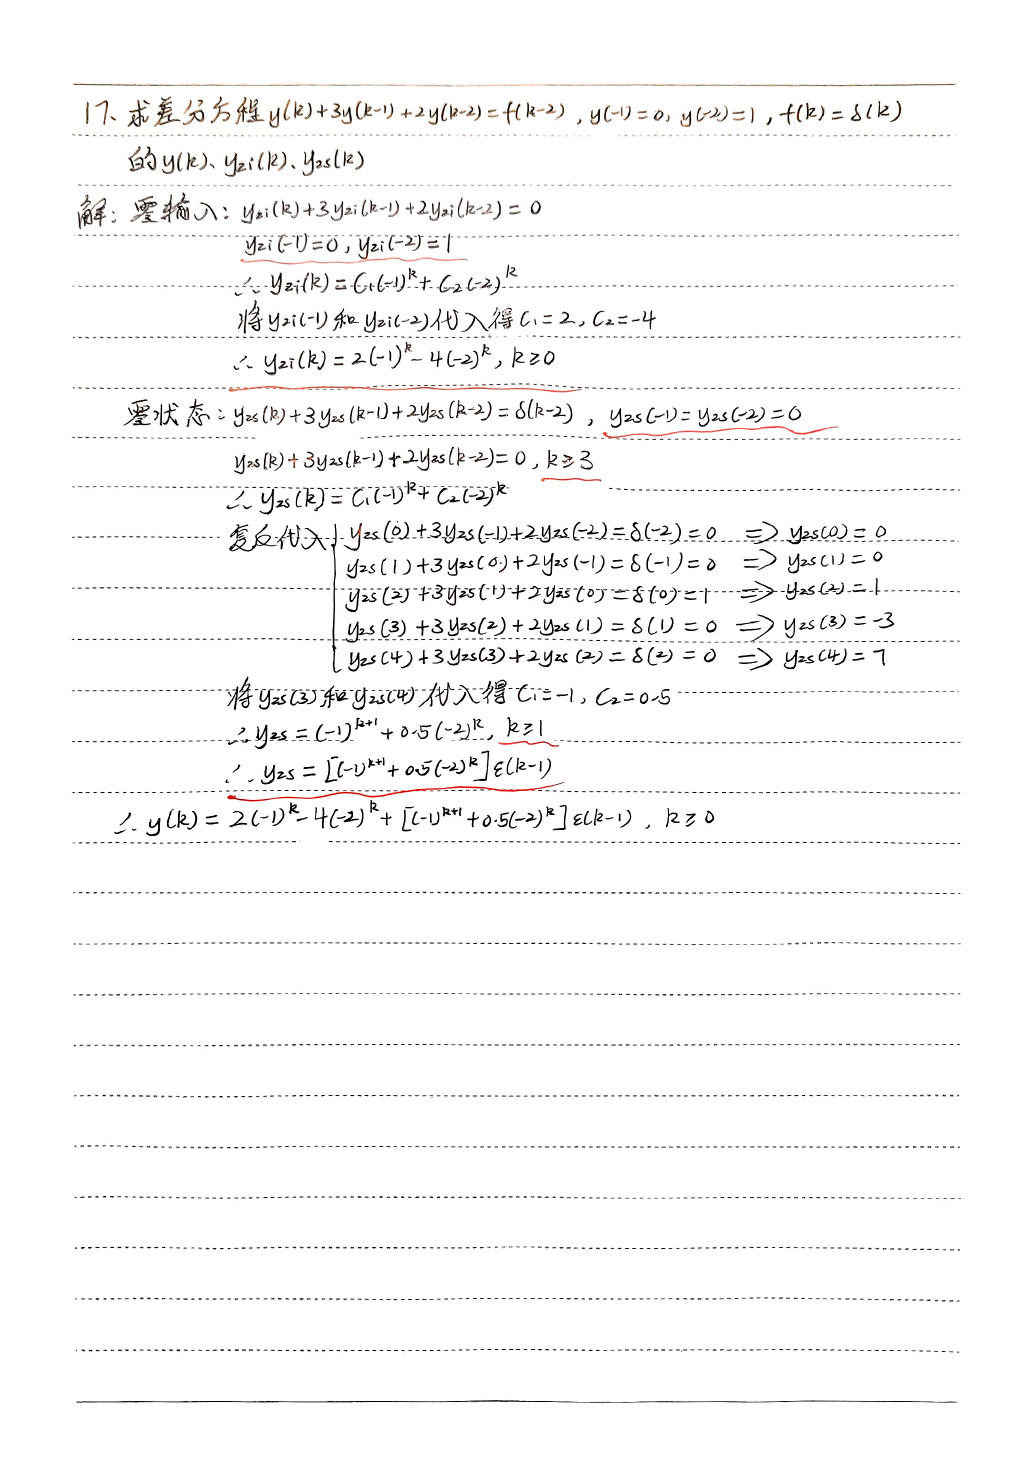 17、求差分方程y(k)+3y(k-1)+2y(k-2)=f(k-2),y(-1)=0,y(-2)=1,f(k)=δ(k)
的y(k)、yzi(k)、yzs(k)
解:零输入:yzi(k)+3yzi(k-1)+2yzi(k-2)=0
yzi(-1)=0,yzi(-2)=1
∴yzi(k)=C₁(-1)ᵏ+C₂(-2)ᵏ
将yzi(-1)和yzi(-2)代入得C₁=2,C₂=-4
∴yzi(k)=2(-1)ᵏ-4(-2)ᵏ,k≥0
零状态:yzs(k)+3yzs(k-1)+2yzs(k-2)=δ(k-2),yzs(-1)=yzs(-2)=0
yzs(k)+3yzs(k-1)+2yzs(k-2)=0,k≥3
∴yzs(k)=C₁(-1)ᵏ+C₂(-2)ᵏ
反代入 yzs(0)+3yzs(-1)+2yzs(-2)=δ(-2)=0 => yzs(0)=0
yzs(1)+3yzs(0)+2yzs(-1)=δ(-1)=0 => yzs(1)=0
yzs(2)+3yzs(1)+2yzs(0)=δ(0)=1 => yzs(2)=1
yzs(3)+3yzs(2)+2yzs(1)=δ(1)=0 => yzs(3)=-3
yzs(4)+3yzs(3)+2yzs(2)=δ(2)=0 => yzs(4)=7
将yzs(3)和yzs(4)代入得C₁=-1,C₂=0.5
∴yzs=(-1)ᵏ⁺¹+0.5(-2)ᵏ,k≥1
∴yzs=[(-1)ᵏ⁺¹+0.5(-2)ᵏ]ε(k-1)
∴y(k)=2(-1)ᵏ-4(-2)ᵏ+[(-1)ᵏ⁺¹+0.5(-2)ᵏ]ε(k-1),k≥0